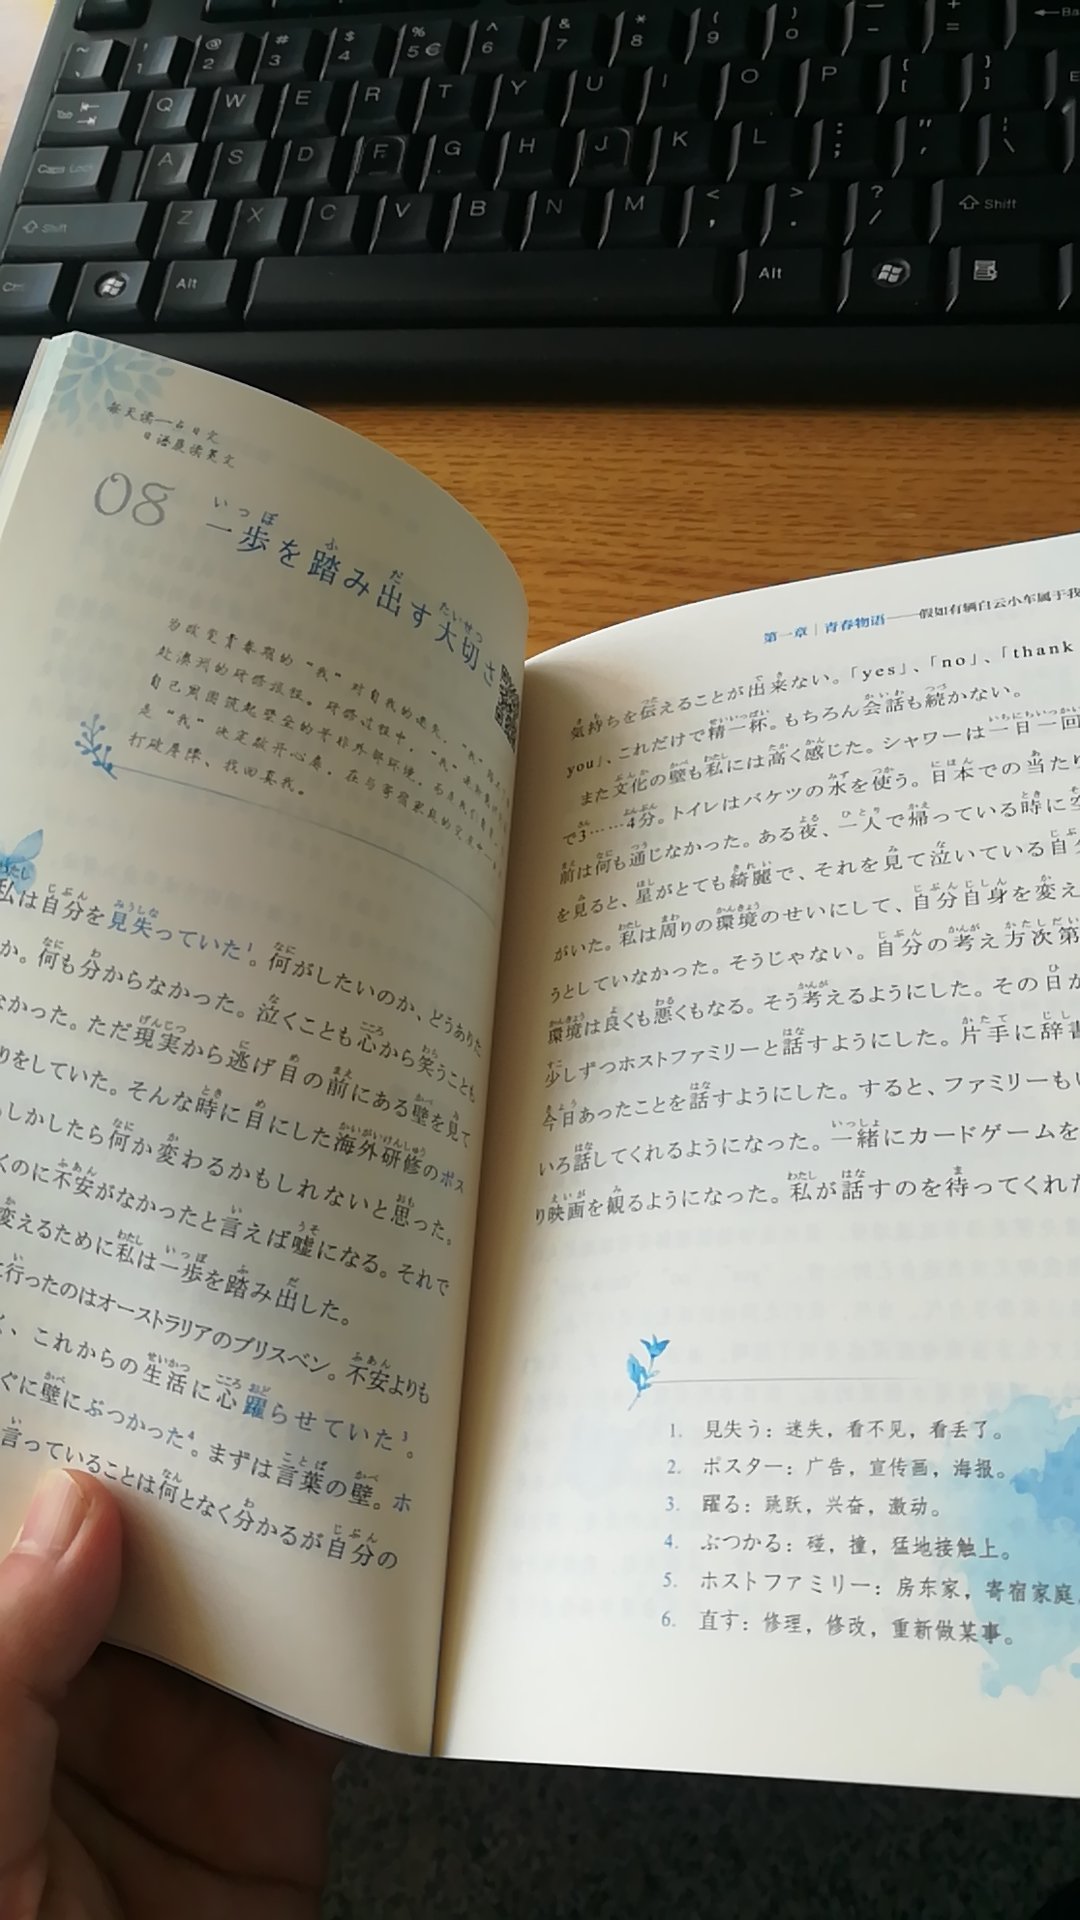 ~ ! @ # $ % ^ & * ( ) _ +
` 1 2 3 4 5 € 6 7 8 9 0 - =
Tab Q W E R T Y U I O P { [ } ]
Caps Lock A S D F G H J K L : ; " ' \
Shift Z X C V B N M < , > . ? / Shift
Alt Alt
每天读一点日文
日语晨读美文
08 一歩を踏み出す大切さ
いっぽ ふ だ たいせつ
为改变青春期的“我”对自我的迷失,“我”
赴澳洲的研修旅程。研修过程中,“我”
自己周围筑起壁垒的并非外部环境,
是“我”决定敞开心扉,在与寄宿家庭的
打破屏障、找回真我。
私は自分を見失っていた1。何がしたいのか、どうありた
か。何も分からなかった。泣くことも心から笑うことも
なかった。ただ現実から逃げ目の前にある壁を見て
りをしていた。そんな時に目にした海外研修のポス
しかしたら何か変わるかもしれないと思った。
くのに不安がなかったと言えば嘘になる。それで
変えるために私は一歩を踏み出した。
行ったのはオーストラリアのブリスベン。不安よりも
く、これからの生活に心躍らせていた3。
ぐに壁にぶつかった4。まずは言葉の壁。ホ
言っていることは何となく分かるが自分の
第一章 | 青春物语——假如有辆白云小车属于我
気持ちを伝えることが出来ない。「yes」、「no」、「thank
you」、これだけで精一杯。もちろん会話も続かない。
また文化の壁も私には高く感じた。シャワーは一日一回
で3……4分。トイレはバケツの水を使う。日本での当たり
前は何も通じなかった。ある夜、一人で帰っている時に空
を見ると、星がとても綺麗で、それを見て泣いている自分
がいた。私は周りの環境のせいにして、自分自身を変え
うとしていなかった。そうじゃない。自分の考え方次第
環境は良くも悪くもなる。そう考えるようにした。その日か
少しずつホストファミリーと話すようにした。片手に辞書
今日あったことを話すようにした。すると、ファミリーもい
いろ話してくれるようになった。一緒にカードゲームを
り映画を観るようになった。私が話すのを待ってくれた
1. 見失う：迷失，看不见，看丢了。
2. ポスター：广告，宣传画，海报。
3. 躍る：跳跃，兴奋，激动。
4. ぶつかる：碰，撞，猛地接触上。
5. ホストファミリー：房东家，寄宿家庭
6. 直す：修理，修改，重新做某事。